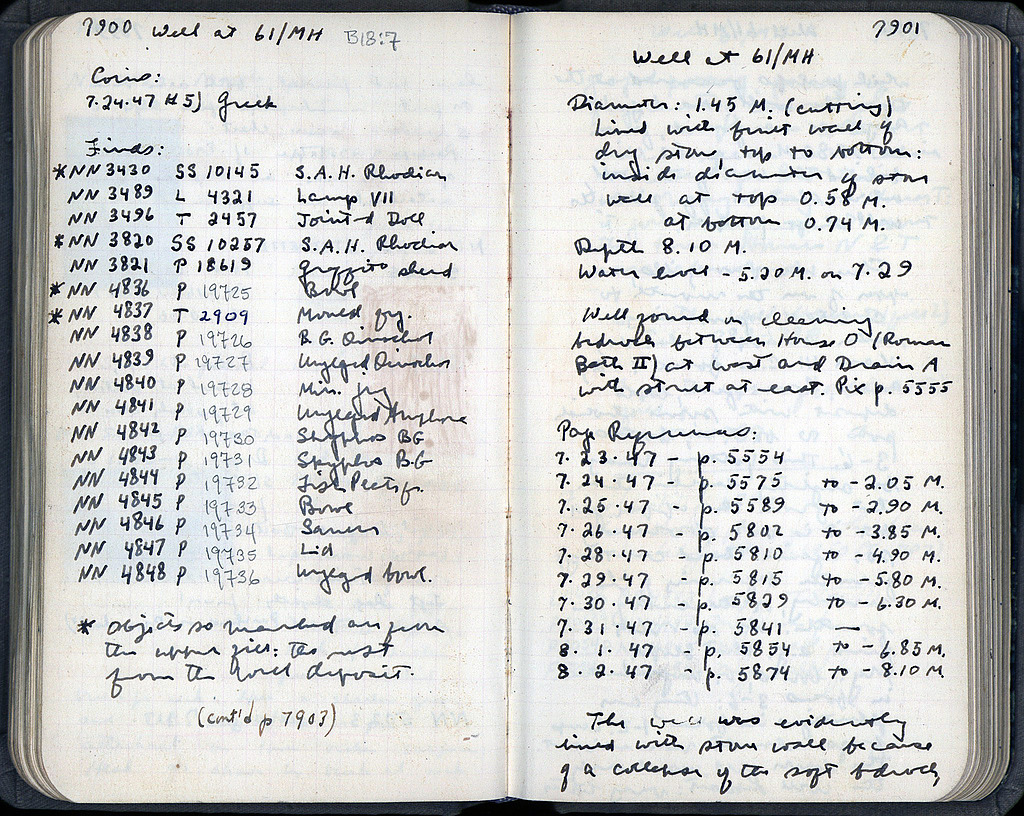 7900 Well at 61/MH B18:7
Coins:
7.24.47 #5) Greek
Finds:
*NN 3430 SS 10145 S.A.H. Rhodian
NN 3489 L 4321 Lamp VII
NN 3496 T 2457 Jointed Doll
*NN 3820 SS 10257 S.A.H. Rhodian
NN 3821 P 18619 Graffito sherd
*NN 4836 P 19725 Bowl
*NN 4837 T 2909 Mould frg.
NN 4838 P 19726 B.G. Oinochoe
NN 4839 P 19727 Unglazed Oinochoe
NN 4840 P 19728 Min. jug
NN 4841 P 19729 Unglazed Amphora
NN 4842 P 19730 Skyphos BG
NN 4843 P 19731 Skyphos B.G
NN 4844 P 19732 Fish Plate fr.
NN 4845 P 19733 Bowl
NN 4846 P 19734 Saucer
NN 4847 P 19735 Lid
NN 4848 P 19736 Unglazed bowl.
* Objects so marked are from
the upper fill: the rest
from the lower deposit.
(cont'd p 7903)
7901
Well at 61/MH
Diameter: 1.45 M. (cutting)
Lined with faint wall of
dry stone, top to bottom:
inside diameter of stone
wall at top 0.58 M.
at bottom 0.74 M.
Depth 8.10 M.
Water level - 5.20 M. on 7.29
Well found in cleaning
bedrock between House O (Roman
Bath II) at west and Drain A
with street at east. Pix p. 5555
Page References:
7.23.47 - p. 5554
7.24.47 - p. 5575 to -2.05 M.
7.25.47 - p. 5589 to -2.90 M.
7.26.47 - p. 5802 to -3.85 M.
7.28.47 - p. 5810 to -4.90 M.
7.29.47 - p. 5815 to -5.80 M.
7.30.47 - p. 5829 to -6.30 M.
7.31.47 - p. 5841 —
8.1.47 - p. 5854 to -6.85 M.
8.2.47 - p. 5874 to -8.10 M.
The well was evidently
lined with stone wall because
of a collapse of the soft bedrock,